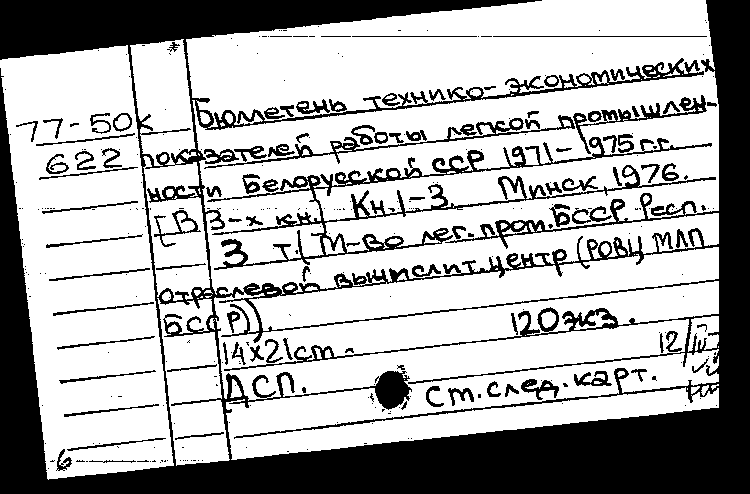 77-50к Бюллетень технико-экономических
622 показателей работы легкой промышлен-
ности Белорусской ССР 1971-1975 г.г.
[В 3-х кн.] Кн.1-3. Минск, 1976.
3 т. (М-во лег. пром. БССР. Респ.
отраслевой вычислит. центр (РОВЦ МЛП
БССР)).
14х21см. 120 экз.
12/IV
ДСП. См. след. карт.
6